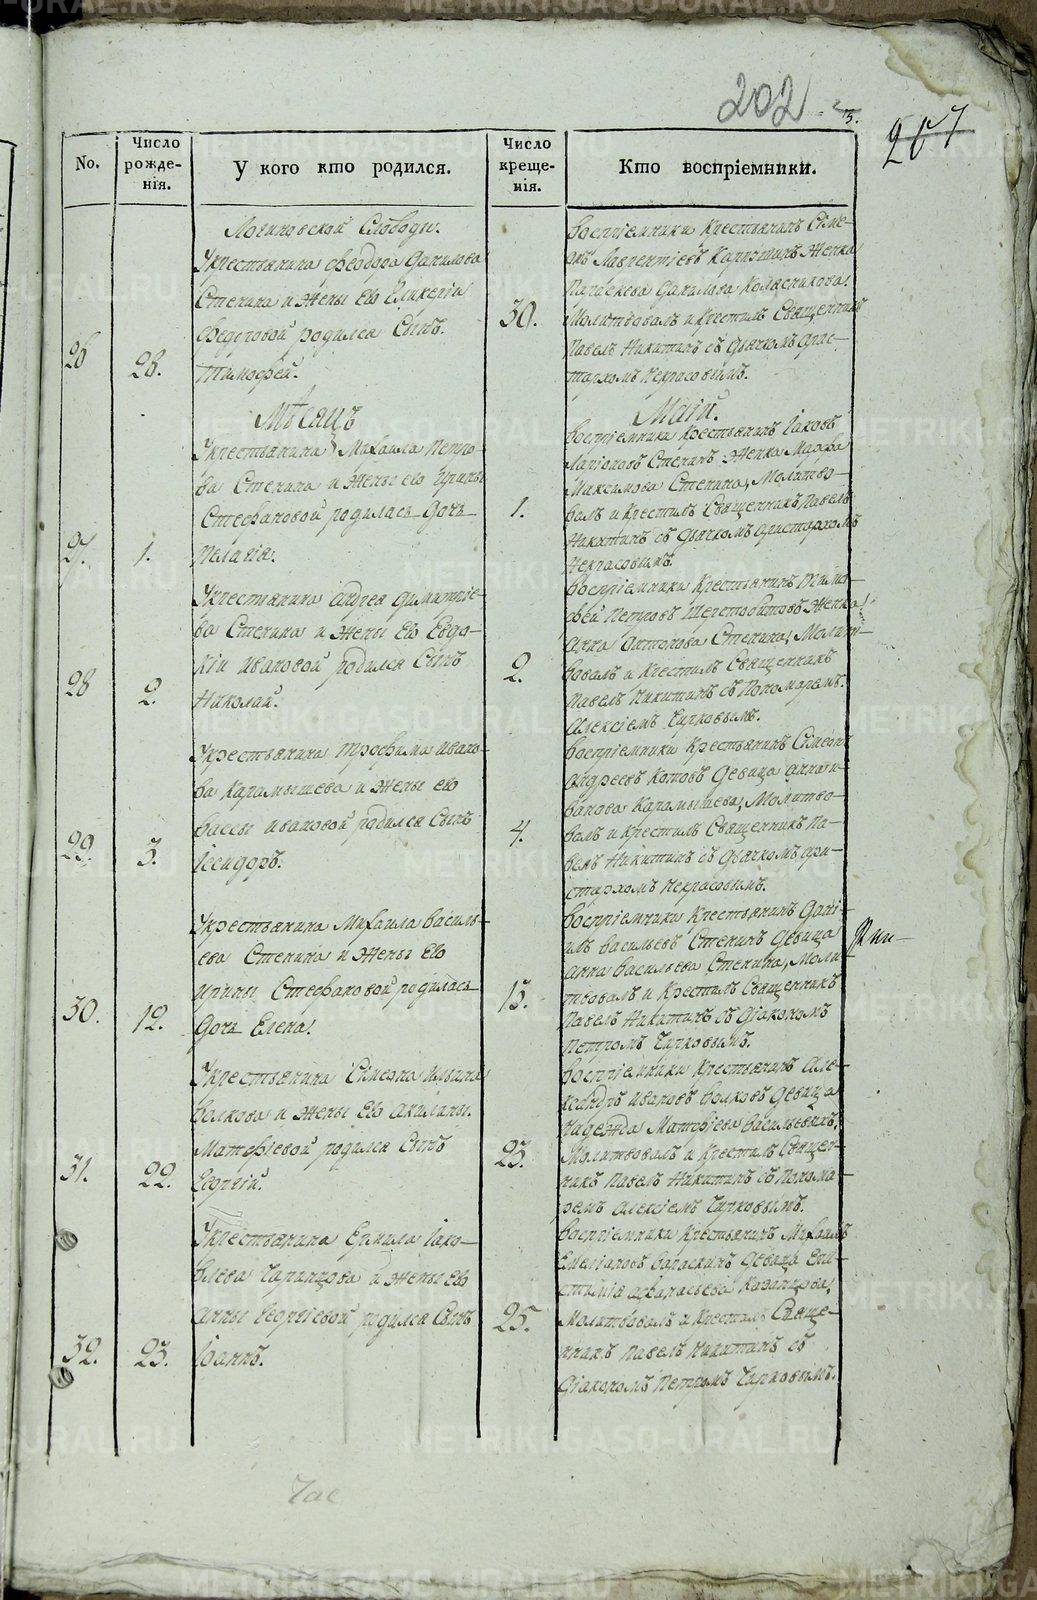 202
No.
Число рожде-нія.
У кого кто родился.
Число креще-нія.
Кто воспріемники.
Логиновской Слободы.
Укрестьянина Феодора Данилова
Стенина и жены его Гликеріи
Федоровой родился Сынъ
26
28.
Тимофей.
30.
воспріемники крестьянинъ Симе-
онъ Лаврентіевъ женка
Параскева Данилова Колесникова!
Молитвовалъ и крестилъ Священникъ
Павелъ Никитинъ съ Дьячкомъ Арис-
тархомъ Некрасовымъ.
Мѣсяцъ
Маій.
Укрестьянина Михаила Петро-
ва Стенина и жены его Ирины
Стефановой родилась дочь
27.
1.
Пелагія.
1.
воспріемники крестьянинъ Іаковъ
Ларіоновъ Стенинъ женка Марфа
Максимова Стенина, Молитво-
валъ и крестилъ Священникъ Павелъ
Никитинъ съ Дьячкомъ Аристархомъ
Некрасовымъ.
Укрестьянина Андрея Димитріе-
ва Стенина и жены его Евдо-
кіи Ивановой родился Сынъ
28
2.
Николай.
2.
воспріемники крестьянинъ Тимо-
фей Петровъ Шерстобитовъ женка
Анна Антонова Стенина, Молит-
вовалъ и крестилъ Священникъ
Павелъ Никитинъ съ Пономаремъ
Алексіемъ Чирковымъ.
Укрестьянина Трофима Ивано-
ва Карамышева и жены его
Вассы Ивановой родился Сынъ
29.
3.
Ісидоръ.
4.
воспріемники крестьянинъ Симеонъ
Андреевъ Котовъ девица Анна И-
ванова Карамышева, Молитво-
валъ и крестилъ Священникъ Па-
велъ Никитинъ съ Дьячкомъ Ари-
стархомъ Некрасовымъ.
Укрестьянина Михаила Василь-
ева Стенина и жены его
Ирины Стефановой родилась
30.
12.
дочь Елена!
13.
воспріемники крестьянинъ Дани-
илъ Васильевъ Стенинъ девица
Анна Васильева Стенина, Моли-
твовалъ и крестилъ Священникъ
Павелъ Никитинъ съ Діакономъ
Петромъ Чирковымъ.
Укрестьянина Симеона Ильина
Волкова и жены его Акилины
Матфіевой родился Сынъ
31.
22.
Георгій.
23.
воспріемники крестьянинъ Але-
ксандръ Ивановъ Волковъ девица
Надежда Матфіева Васильевыхъ,
Молитвовалъ и крестилъ Священ-
никъ Павелъ Никитинъ съ Понома-
ремъ Алексіемъ Чирковымъ.
Укрестьянина Ермила Іако-
влева и жены его
Анны Георгіевой родился Сынъ
32.
23.
Іоаннъ.
25.
воспріемники крестьянинъ Михаилъ
Емеліановъ девица Епи-
стимія Афанасьева Казанцова,
Молитвовалъ и крестилъ Свяще-
нникъ Павелъ Никитинъ съ
Діакономъ Петромъ Чирковымъ.